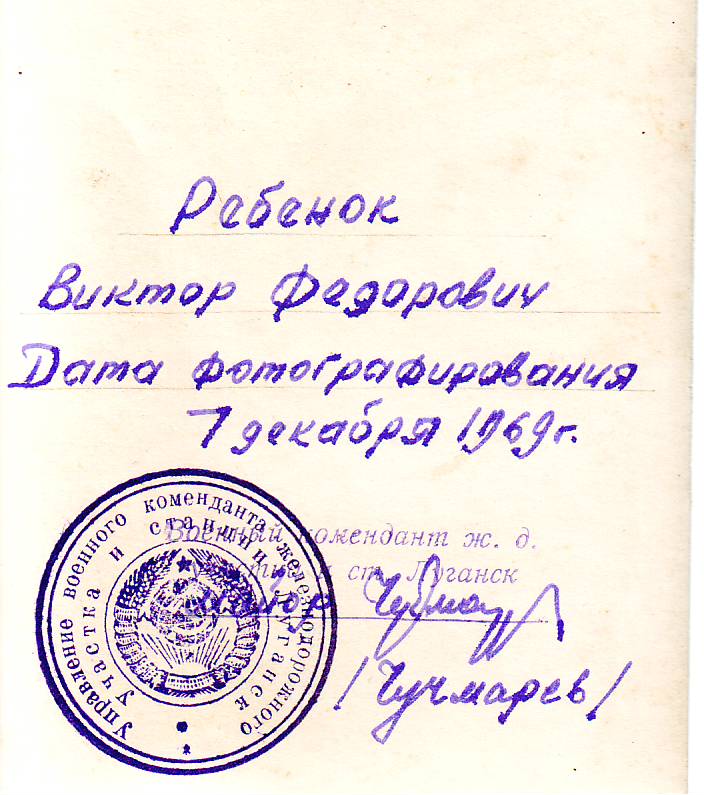 Ребенок
Виктор Федорович
Дата фотографирования
7 декабря 1969 г.
Военный комендант ж. д.
ст. Луганск
майор
/Чучмарев/
Управление военного коменданта железнодорожного
участка и станции Луганск